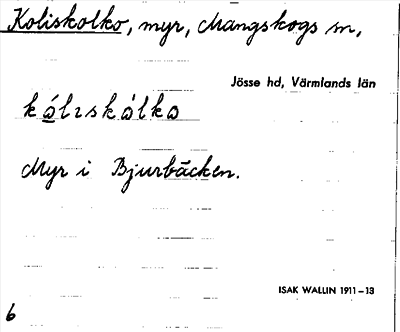 Koliskolko, myr, Mangskogs sn,
Jösse hd, Värmlands län
kóliskòlko
Myr i Bjurbäcken.
ISAK WALLIN 1911–13
6